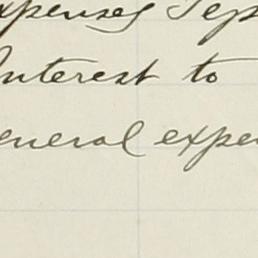 xpenses Sep
Interest to
eneral expen